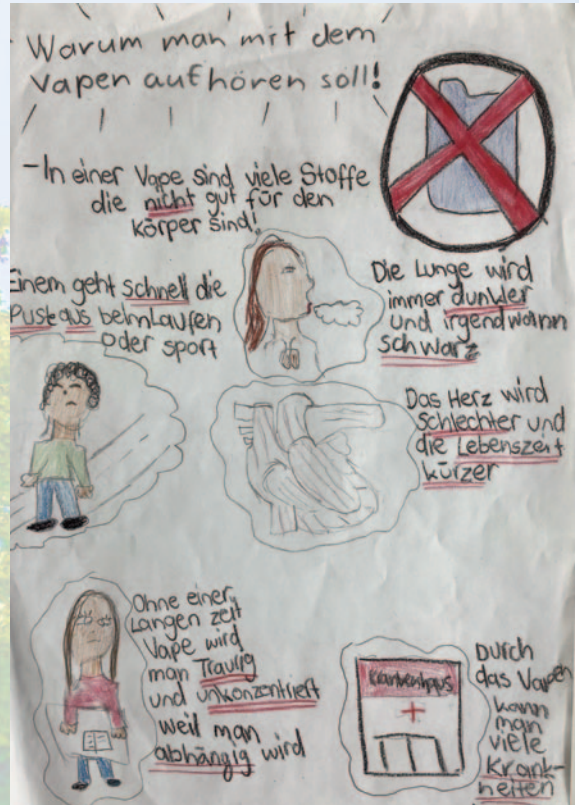 Warum man mit dem
Vapen aufhören soll!
-In einer Vape sind viele Stoffe
die nicht gut für den
körper sind!
Einem geht schnell die
Puste aus beim Laufen
oder sport
Die Lunge wird
immer dunkler
und irgendwann
schwarz
Das Herz wird
Schlechter und
die Lebenszeit
kürzer
Ohne einer
Langen zeit
Vape wird
man Traurig
und unkonzentriert
weil man
abhängig wird
Krankenhaus
Durch
das Vapen
kann
man
viele
Krank-
heiten